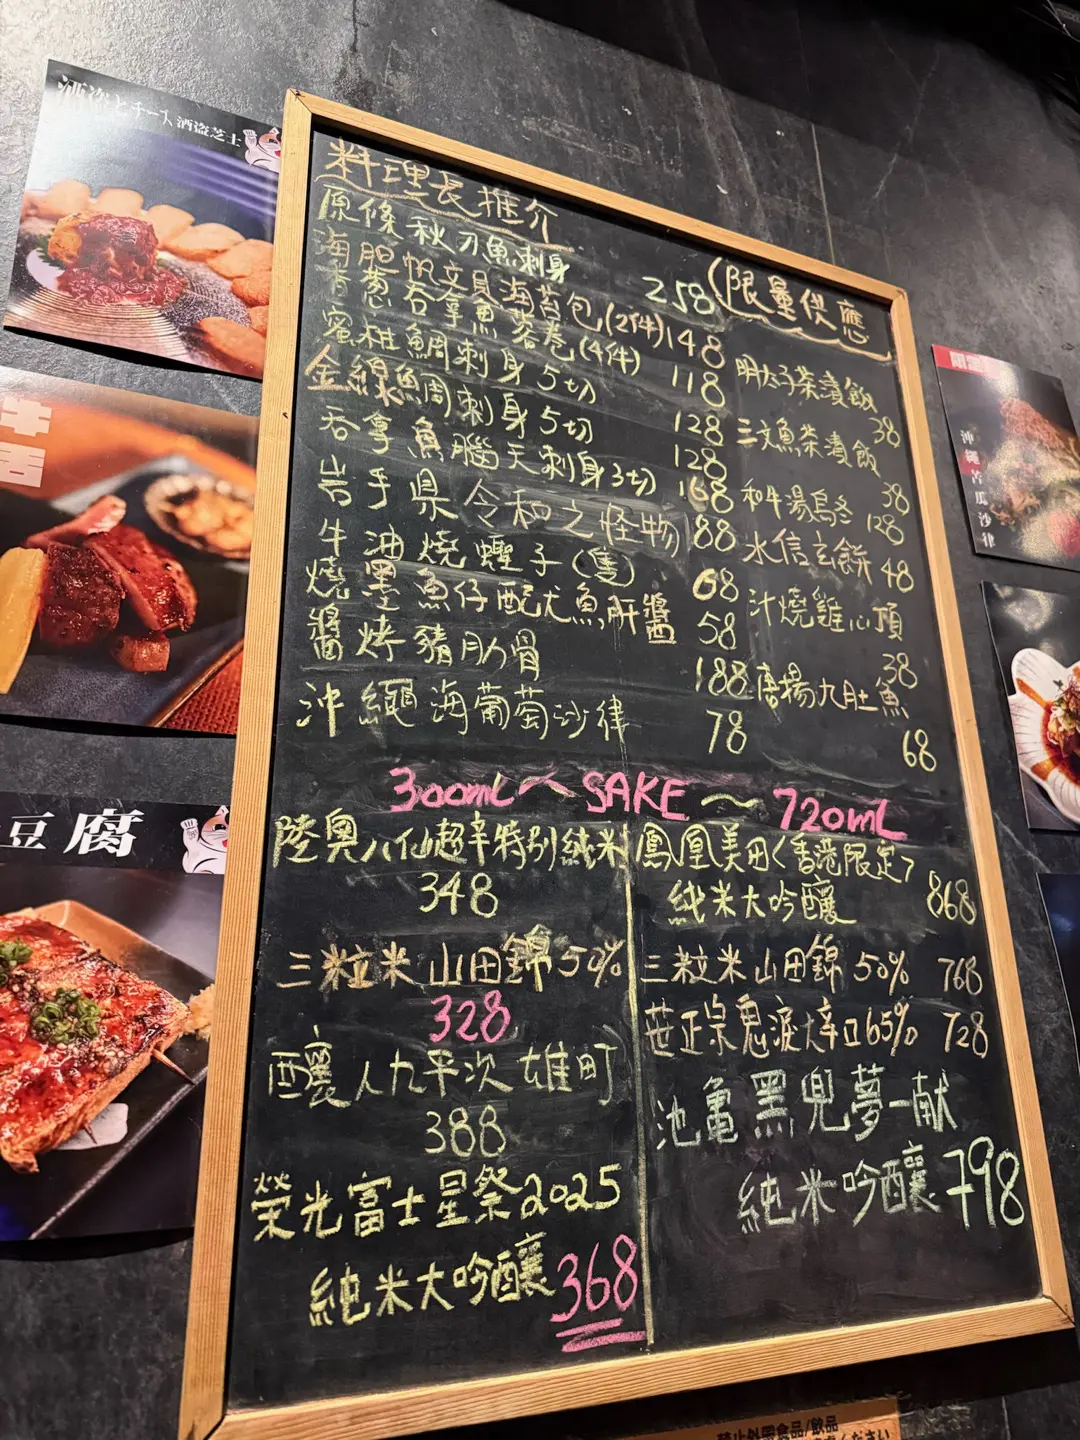 酒盗とチーズ 酒盗芝士
料理長推介
原條秋刀魚刺身 258 (限量供應
海胆帆立貝海苔包(2件) 148
香蔥吞拿魚蓉卷(4件) 118
蜜柑鯛刺身5切 128
金線鯛刺身5切 128
吞拿魚腦天刺身3切 168
岩手県令和之怪物 88
牛油燒蟶子(隻) 68
燒墨魚仔配尤魚肝醬 58
醬烤豬肋骨 188
沖繩海葡萄沙律 78
明太子茶漬飯 38
三文魚茶漬飯 38
和牛湯烏冬 128
水信玄餅 48
汁燒雞心頂 38
唐揚九肚魚 68
300mL ~ SAKE ~ 720mL
陸奧八仙超辛特別純米
348
三粒米山田錦50%
328
釀人九平次 雄町
388
榮光富士星祭2025
純米大吟釀 368
鳳凰美田<香港限定>
純米大吟釀 868
三粒米山田錦 50% 768
笹正宗鬼淚大辛口65% 728
池亀黑兜夢一献
純米吟釀 798
豆腐
沖繩苦瓜沙律
禁止外帶食品/飲品